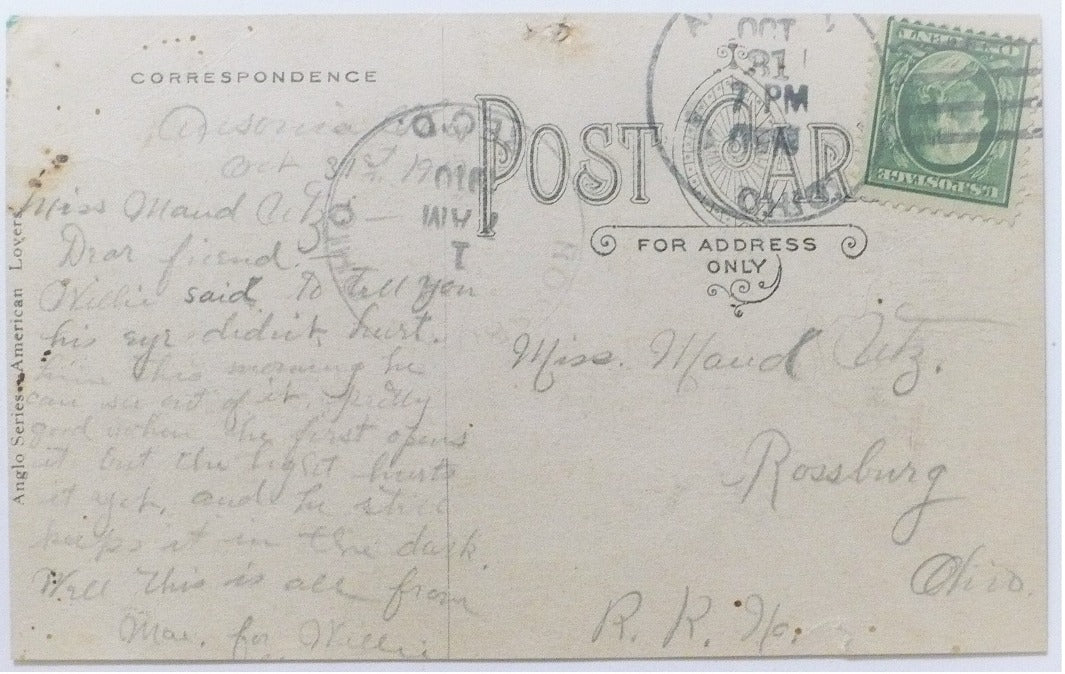 CORRESPONDENCE
Ansonia Ohio
Oct 31st, 19
Miss Maud Utz —
Dear friend.
Willie said to tell you
his eye didn't hurt.
this morning he
can see out of it, pretty
good when he first opens
it but the light hurts
it yet, and he still
keeps it in the dark.
Well this is all from
Mae. for Willie.
Anglo Series—American Lover
POST CARD
FOR ADDRESS
ONLY
OCT
31
7 PM
OHIO
U.S. POSTAGE
Miss. Maud Utz.
Rossburg
Ohio.
R. R. No.